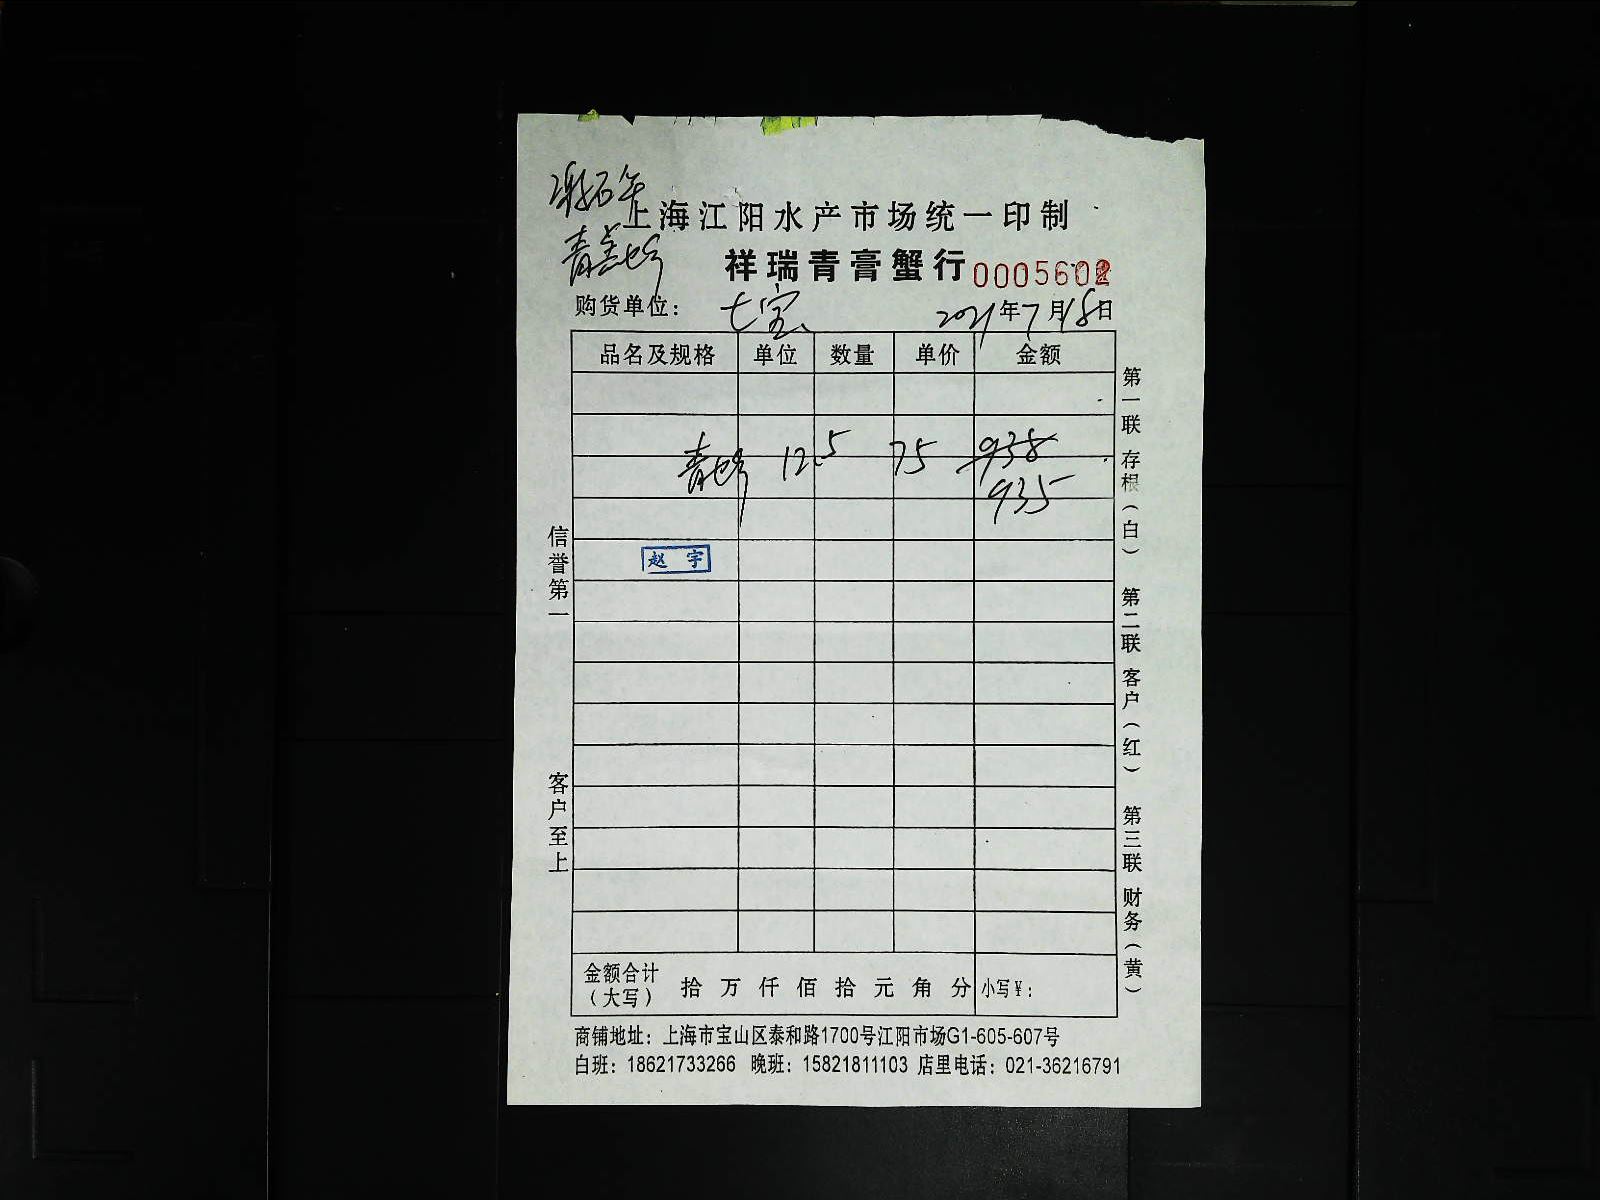 上海江阳水产市场统一印制
祥瑞青膏蟹行 0005602
购货单位: 七宝 2021年7月18日
品名及规格 单位 数量 单价 金额
青 12.5 75 938
935
赵宇
信誉第一
客户至上
第一联 存根(白) 第二联 客户(红) 第三联 财务(黄)
金额合计(大写) 拾 万 仟 佰 拾 元 角 分 小写¥:
商铺地址: 上海市宝山区泰和路1700号江阳市场G1-605-607号
白班: 18621733266 晚班: 15821811103 店里电话: 021-36216791